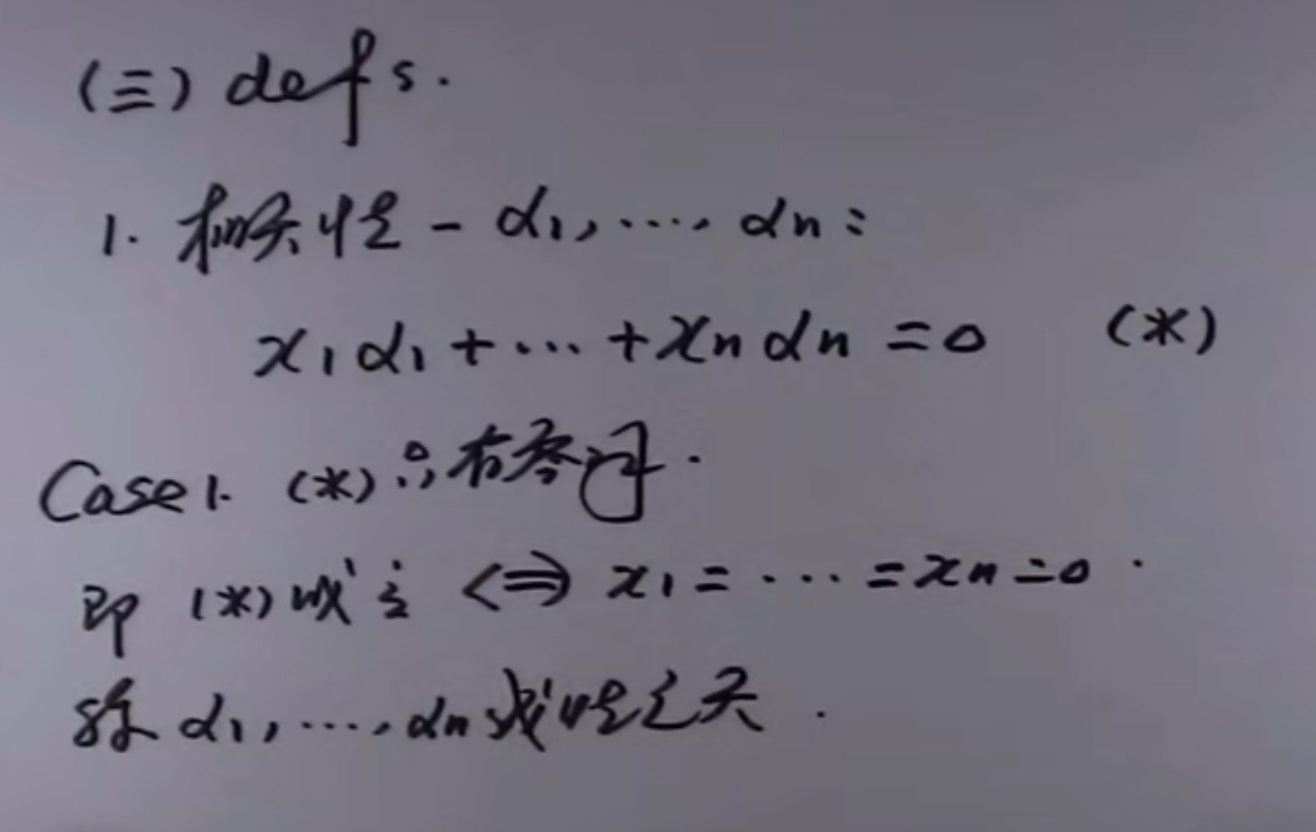 (三) defs.
1. 相关性 - α1, ..., αn:
x1α1 + ... + xnαn = 0 (*)
Case 1. (*) 只有零解.
即 (*) 成立 <=> x1 = ... = xn = 0.
称 α1, ..., αn 线性无关.